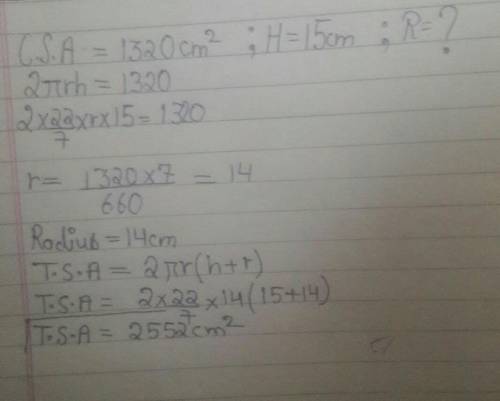 C.S.A = 1320cm² ; H=15cm ; R=?
2πrh = 1320
2×22/7×r×15=1320
r= 1320×7/660 = 14
Radius=14cm
T.S.A = 2πr(h+r)
T.S.A = 2×22/7×14(15+14)
T.S.A = 2552cm²